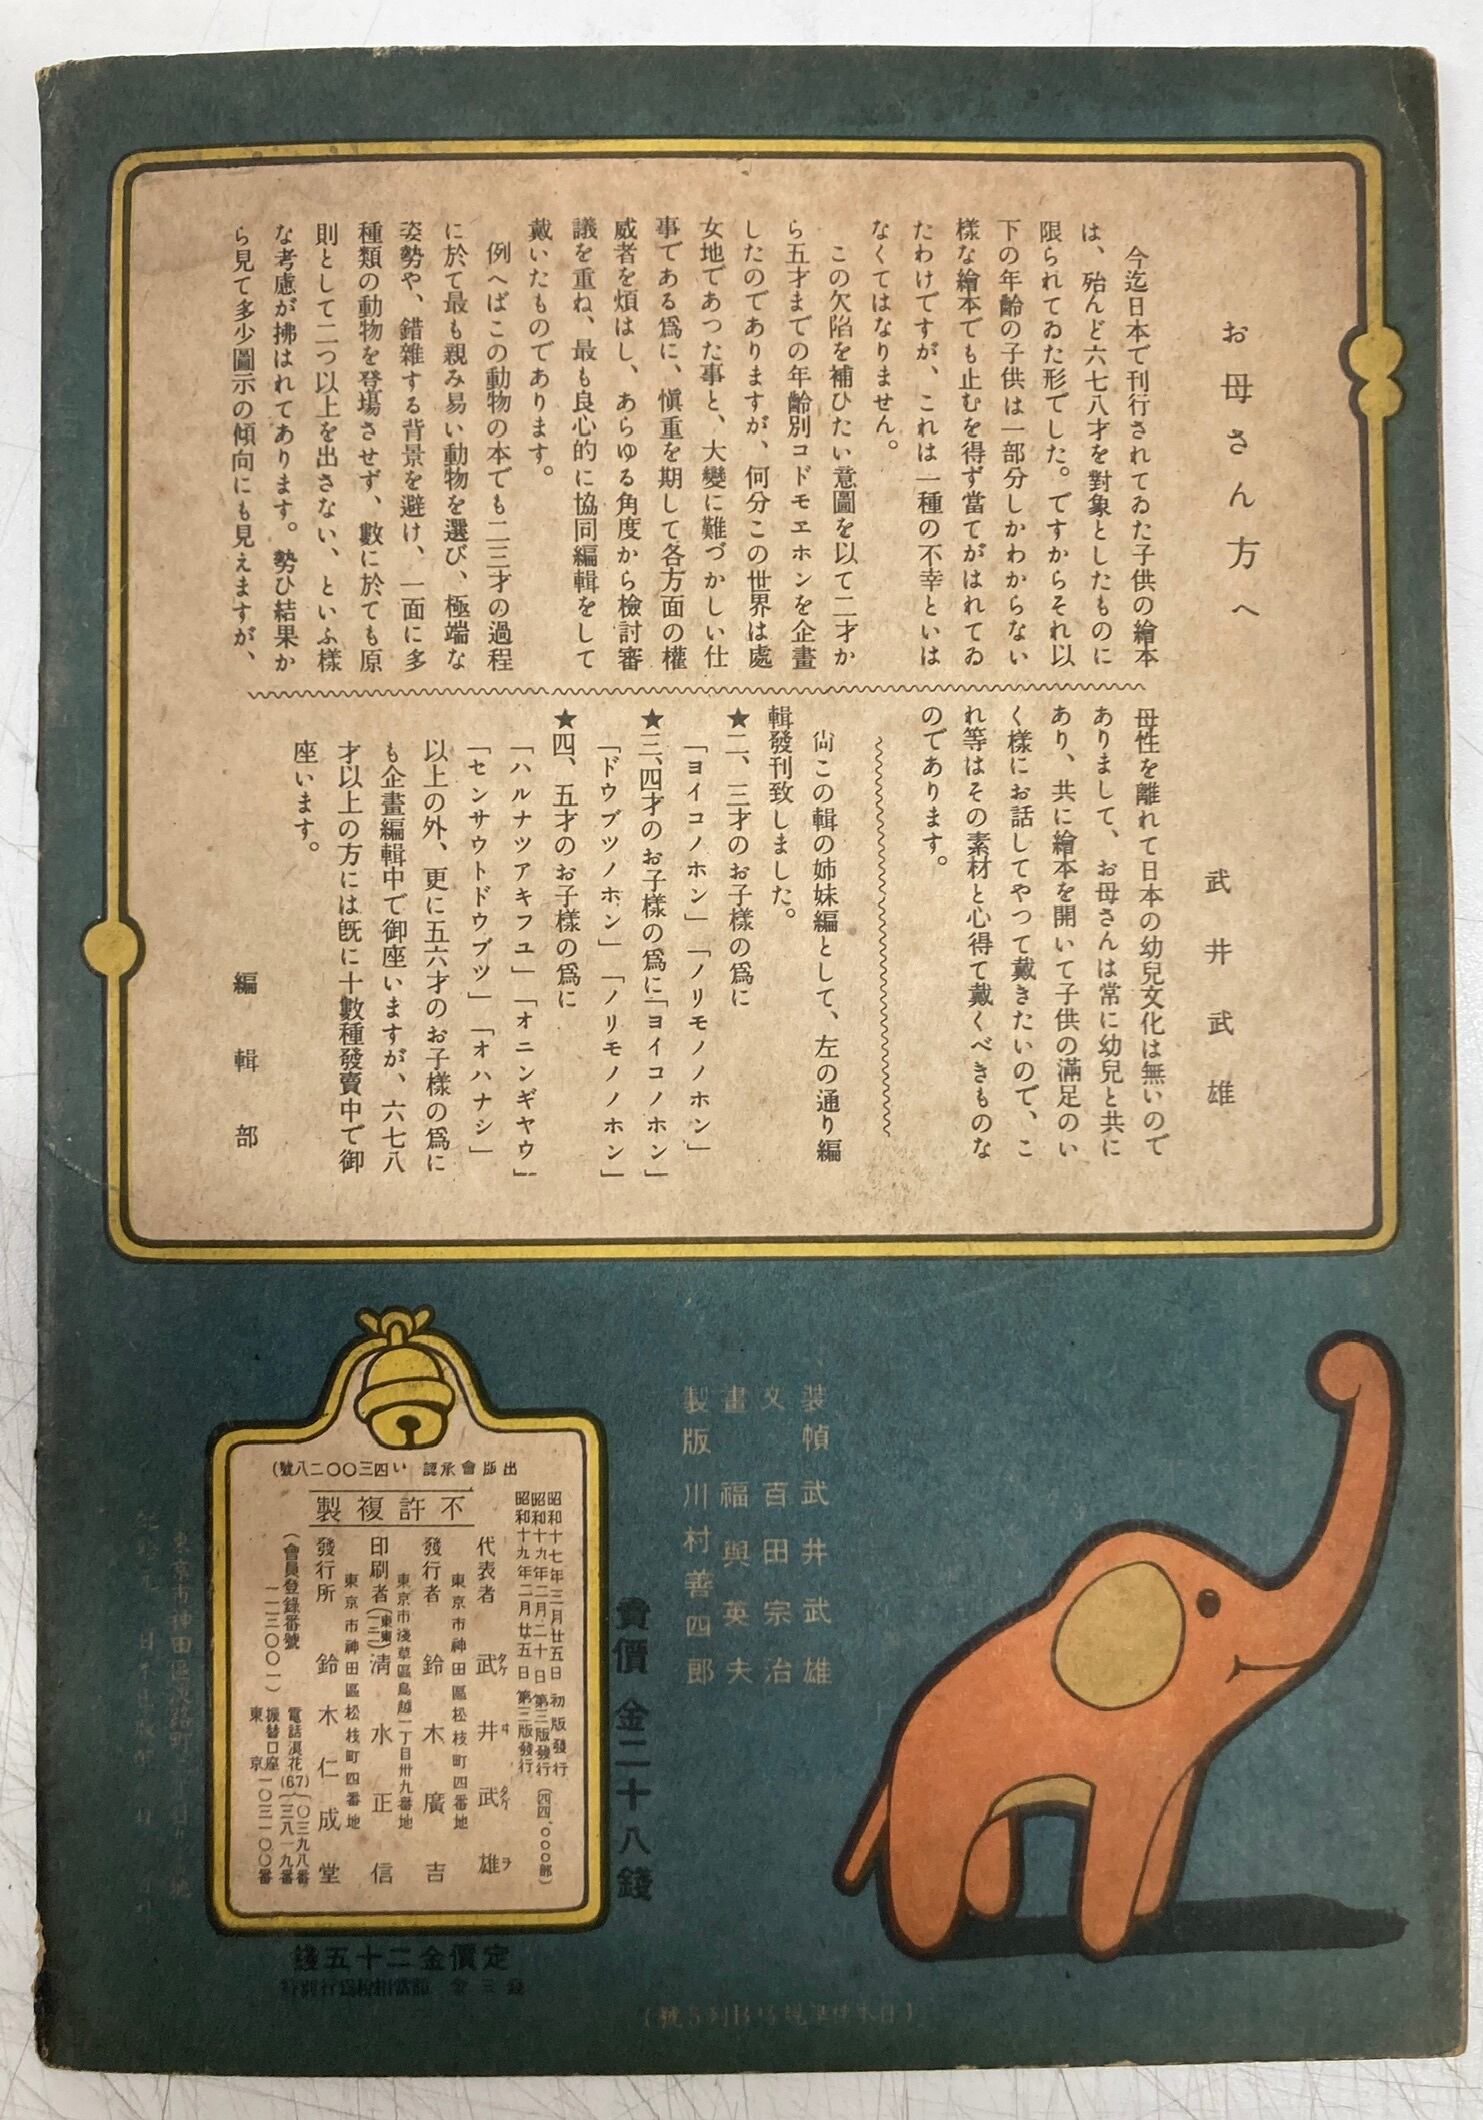 お母さん方へ
武井武雄
今迄日本で刊行されてゐた子供の繪本
は、殆んど六七八才を對象としたものに
限られてゐた形でした。ですからそれ以
下の年齡の子供は一部分しかわからない
樣な繪本でも止むを得ず當てがはれてゐ
たわけですが、これは一種の不幸といは
なくてはなりません。
この欠陷を補ひたい意圖を以て二才か
ら五才までの年齡別コドモエホンを企畫
したのでありますが、何分この世界は處
女地であつた事と、大變に難づかしい仕
事である爲に、愼重を期して各方面の權
威者を煩はし、あらゆる角度から檢討審
議を重ね、最も良心的に協同編輯をして
戴いたものであります。
例へばこの動物の本でも二三才の過程
に於て最も親み易い動物を選び、極端な
姿勢や、錯雜する背景を避け、一面に多
種類の動物を登場させず、數に於ても原
則として二つ以上を出さない、といふ樣
な考慮が拂はれてあります。勢ひ結果か
ら見て多少圖示の傾向にも見えますが、
母性を離れて日本の幼兒文化は無いので
ありまして、お母さんは常に幼兒と共に
あり、共に繪本を開いて子供の滿足のい
く樣にお話してやつて戴きたいので、こ
れ等はその素材と心得て戴くべきものな
のであります。
尙この輯の姉妹編として、左の通り編
輯發刊致しました。
★二、三才のお子樣の爲に
「ヨイコノホン」「ノリモノノホン」
★三、四才のお子樣の爲に「ヨイコノホン」
「ドウブツノホン」「ノリモノノホン」
★四、五才のお子樣の爲に
「ハルナツアキフユ」「オニンギヤウ」
「センサウトドウブツ」「オハナシ」
以上の外、更に五六才のお子樣の爲に
も企畫編輯中で御座いますが、六七八
才以上の方には旣に十數種發賣中で御
座います。
編輯部
裝幀 武井武雄
文 百田宗治
畫 福與英夫
製版 川村善四郎
賣價 金二十八錢
出版會承認 い四三〇〇二八號)
不許複製
昭和十七年三月廿五日 初版發行
昭和十九年二月二十日 第三版發行(四四、〇〇〇部)
昭和十九年二月廿五日 第三版發行
代表者 武井武雄
タケ ヰ タケ ヲ
東京市神田區松枝町四番地
發行者 鈴木廣吉
東京市淺草區鳥越一丁目卅九番地
印刷者(東東一二) 淸水正信
東京市神田區松枝町四番地
發行所 鈴木仁成堂
(會員登錄番號
一一三〇〇一)
電話浪花(67){〇三九八番
三八一九番
振替口座
東京 一〇三一〇〇番
定價金二十五錢
特別行爲稅相當額 金三錢
東京市神田區淡路町
(日本標準規格B列5號)